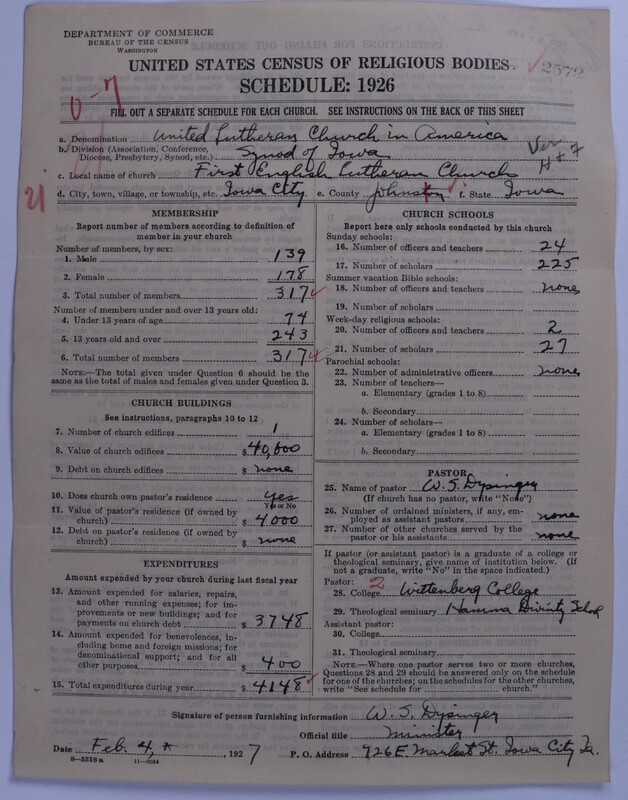 DEPARTMENT OF COMMERCE
BUREAU OF THE CENSUS
WASHINGTON
UNITED STATES CENSUS OF RELIGIOUS BODIES
2572
SCHEDULE: 1926
0-7
FILL OUT A SEPARATE SCHEDULE FOR EACH CHURCH. SEE INSTRUCTIONS ON THE BACK OF THIS SHEET
a. Denomination United Lutheran Church in America
b. Division (Association, Conference, Diocese, Presbytery, Synod, etc.) Synod of Iowa
Ver
c. Local name of church First English Lutheran Church
21
d. City, town, village, or township, etc. Iowa City e. County Johnston f. State Iowa
MEMBERSHIP
Report number of members according to definition of
member in your church
Number of members, by sex:
1. Male 139
2. Female 178
3. Total number of members 317
Number of members under and over 13 years old:
4. Under 13 years of age 74
5. 13 years old and over 243
6. Total number of members 317
NOTE.—The total given under Question 6 should be
same as the total of males and females given under Question 3.
CHURCH BUILDINGS
See instructions, paragraphs 10 to 12
7. Number of church edifices 1
8. Value of church edifices $ 40,000
9. Debt on church edifices $ none
10. Does church own pastor's residence yes
Yes or No
11. Value of pastor's residence (if owned by
church) $ 4000
12. Debt on pastor's residence (if owned by
church) $ none
EXPENDITURES
Amount expended by your church during last fiscal year
13. Amount expended for salaries, repairs,
and other running expenses; for im-
provements or new buildings; and for
payments on church debt $ 3748
14. Amount expended for benevolences, in-
cluding home and foreign missions; for
denominational support; and for all
other purposes $ 400
15. Total expenditures during year $ 4148
CHURCH SCHOOLS
Report here only schools conducted by this church
Sunday schools:
16. Number of officers and teachers 24
17. Number of scholars 225
Summer vacation Bible schools:
18. Number of officers and teachers none
19. Number of scholars
Week-day religious schools:
20. Number of officers and teachers 2
21. Number of scholars 27
Parochial schools:
22. Number of administrative officers none
23. Number of teachers—
a. Elementary (grades 1 to 8)
b. Secondary
24. Number of scholars—
a. Elementary (grades 1 to 8)
b. Secondary
PASTOR
25. Name of pastor W. S. Dysinger
(If church has no pastor, write "None")
26. Number of ordained ministers, if any, em-
ployed as assistant pastors none
27. Number of other churches served by the
pastor or his assistants none
If pastor (or assistant pastor) is a graduate of a college or
theological seminary, give name of institution below. (If
not a graduate, write "No" in the space indicated.)
Pastor: 2
28. College Wittenberg College
29. Theological seminary Hamma Divinity School
Assistant pastor:
30. College
31. Theological seminary
NOTE.—Where one pastor serves two or more churches,
Questions 28 and 29 should be answered only on the schedule
for one of the churches; on the schedules for the other churches,
write "See schedule for church."
Signature of person furnishing information W. S. Dysinger
Official title Minister
Date Feb. 4, 1927 P. O. Address 926 E Market St. Iowa City Ia.
8-5318a 11-9034